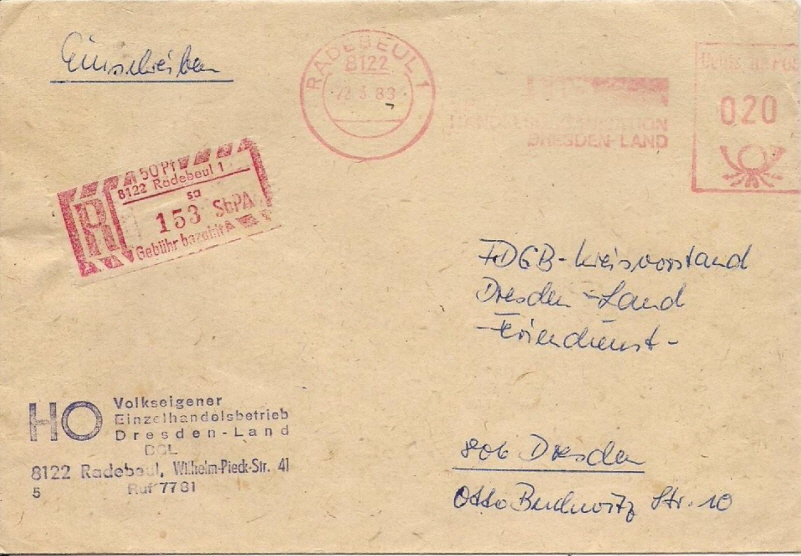 Einschreiben
RADEBEUL 1
8122
DRESDEN-LAND
020
50 Pf
8122 Radebeul 1
sa
R
153 SbPA
Gebühr bezahlt
FDGB-Kreisvorstand
Dresden-Land
-Feriendienst-
806 Dresden
Otto Buchwitz Str. 10
HO
Volkseigener
Einzelhandelsbetrieb
Dresden-Land
8122 Radebeul, Wilhelm-Pieck-Str. 41
5
Ruf 7781